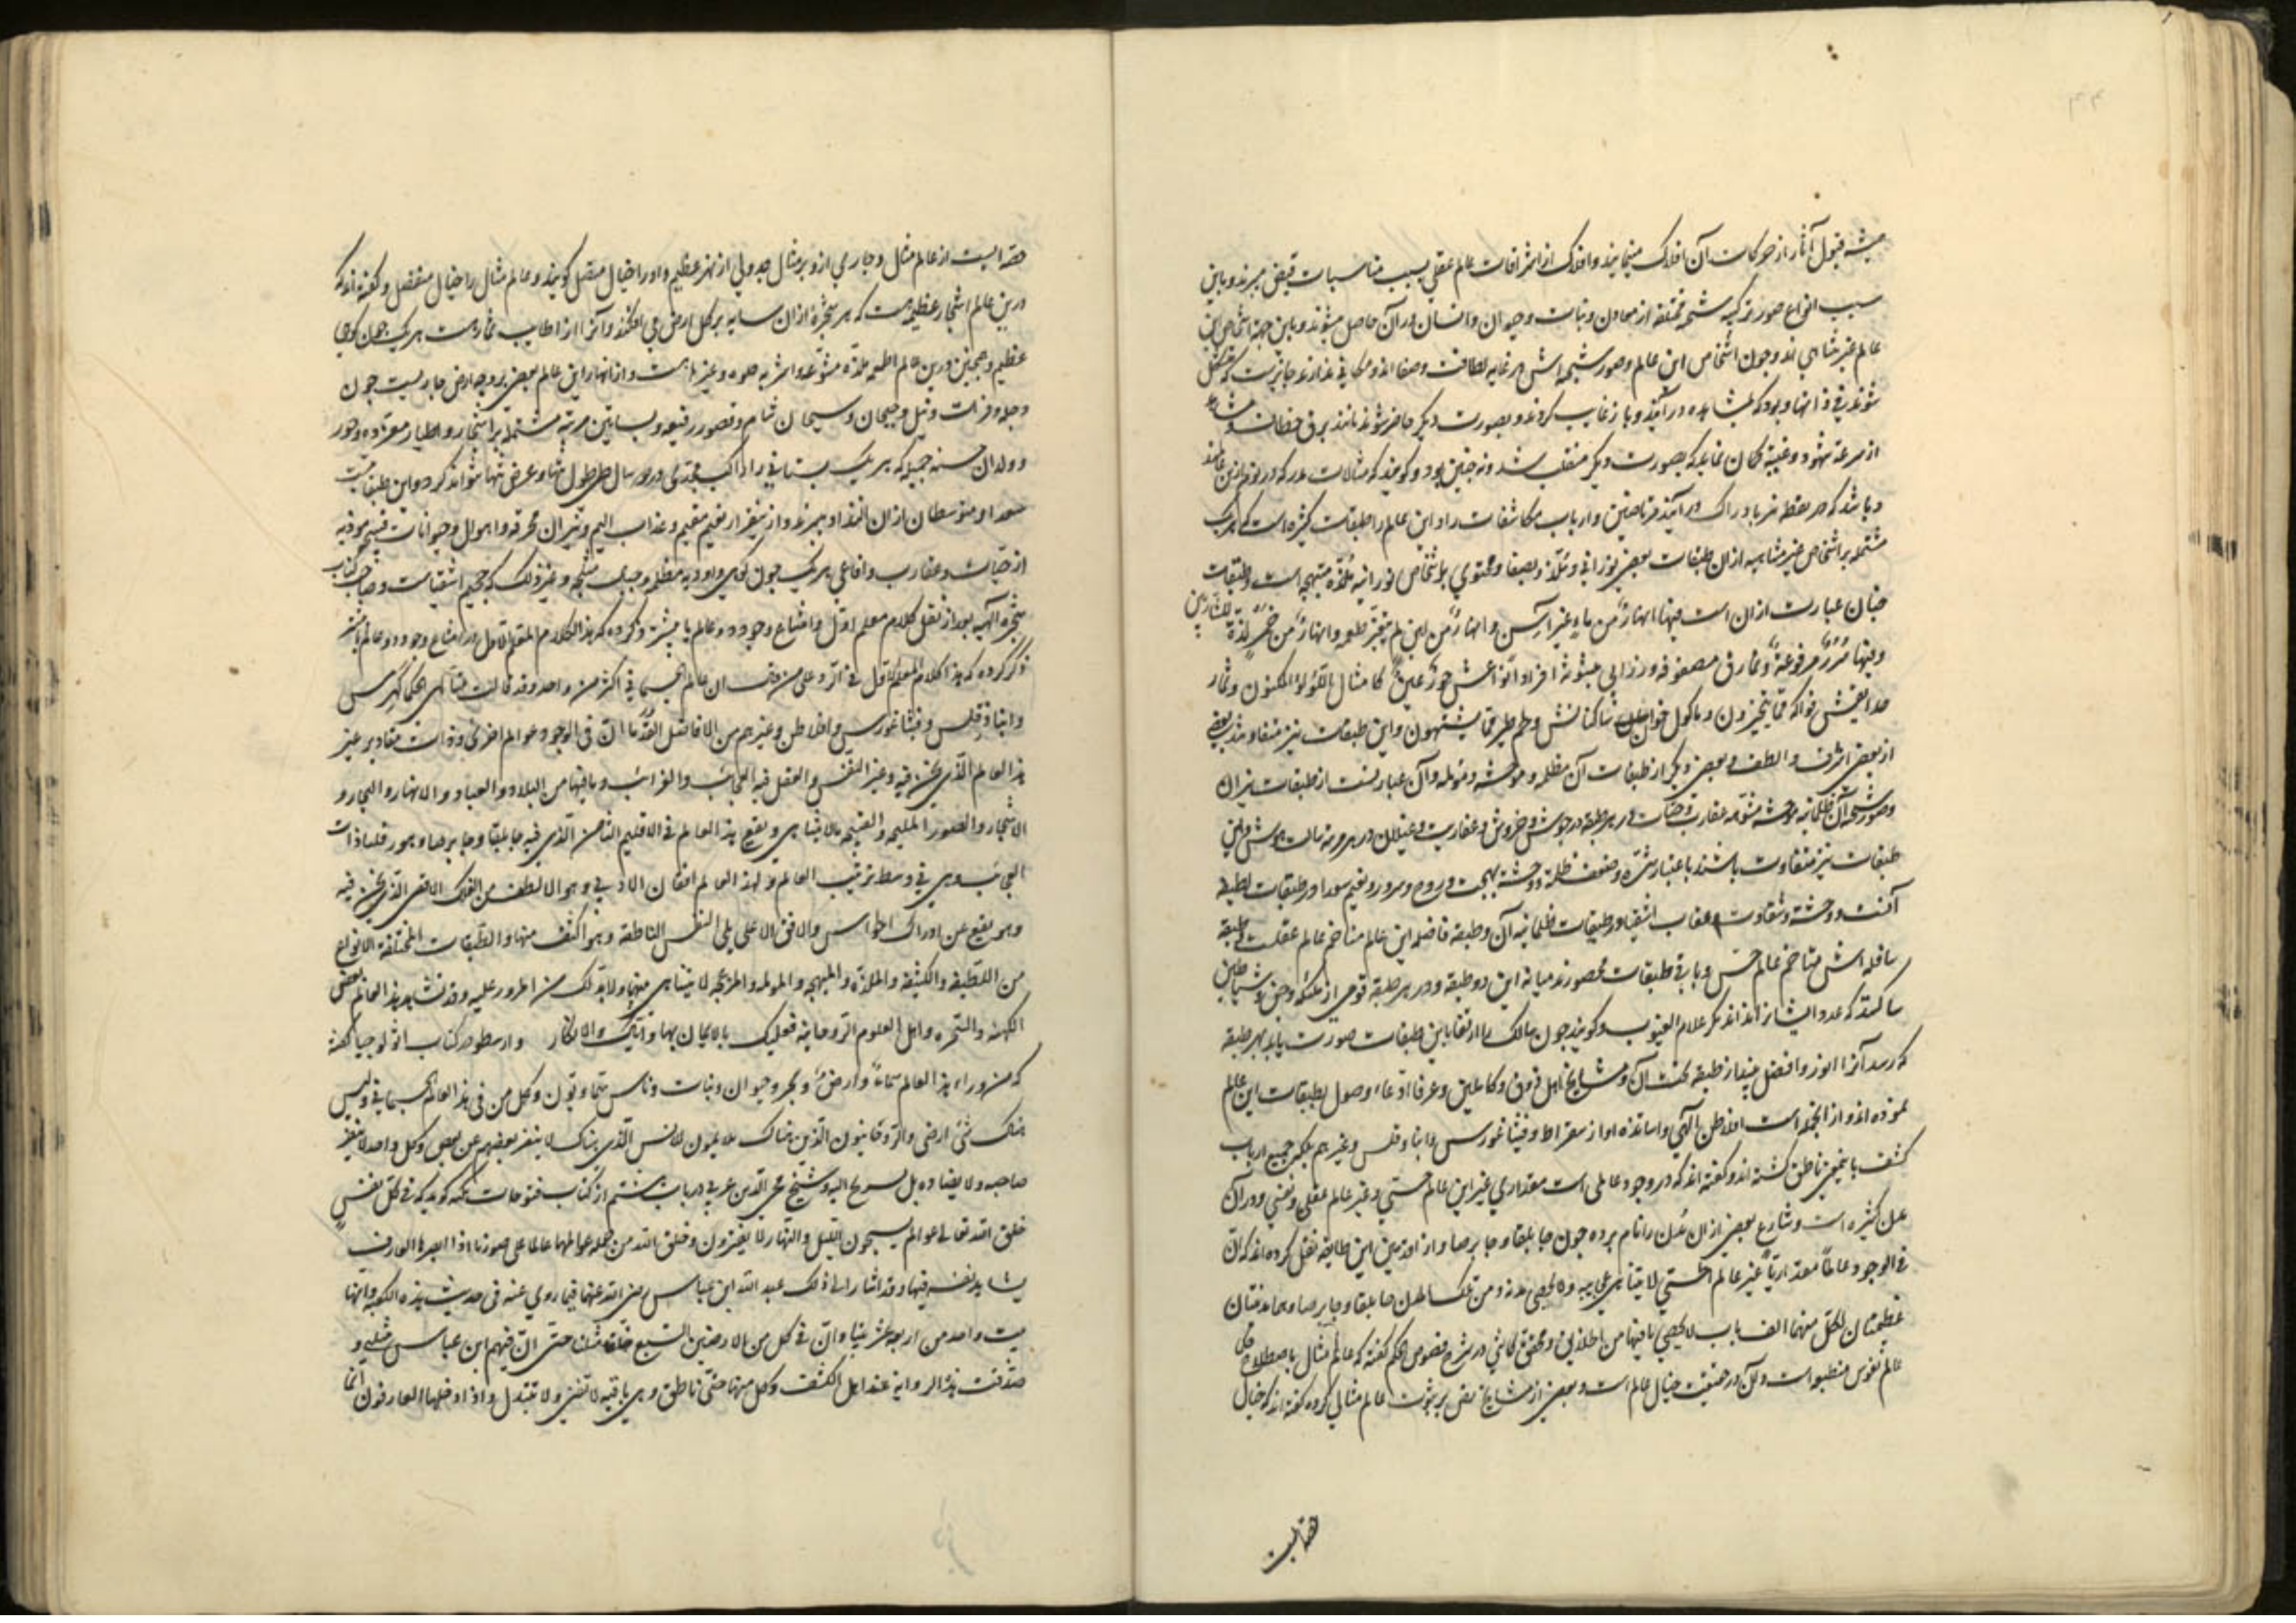 قبول آثار از حرکات آن افلاک مینمایند و افلاک از اشراقات عالم عقلی بسبب مناسبات فیض میبرند و باین
سبب انواع صور ترکیبیه مختلفه از معادن و نبات و حیوان و انسان در آن حاصل میشوند و باین جهة اشخاص این
عالم غیر متناهی اند و چون اشخاص این عالم و صور در غایه لطافت و صفا اند و مکانی ندارند جایزست که
شوند در و بود که بمشاهده در آیند و باز غایب گردند و بصورت دیگر حاضر شوند مانند برق
از سرعة شهود و غیبة گمان نماید که بصورت دیگر منقلب شد و نه چنین بود و گویند که
و باشد که در یقظه نیز بادراک در آیند مرتاضین و ارباب مکاشفات را و این عالم را طبقات کثیره است که هر یک
مشتمله بر اشخاص غیر متناهیه از آن طبقات بعضی نورانی و محتوی بر اشخاص نورانیه ملتذه مبتهجه است و طبقات
جنان عبارت از آن است فیها انهارٌ من ماءٍ غیر آسن و انهارٌ من لبن لم یتغیّر طعمه و انهارٌ من خمر لذة للشاربین
و فیها سُرُرٌ مرفوعة و نمارق مصفوفه و زرابی مبثوثه حورٌ عینٌ کامثال اللؤلؤ المکنون و ثمار
فواکه ممّا یتخیرون و ماکول ساکنانش و لحم طیر ممّا یشتهون و این طبقات نیز متفاوتند بعضی
از بعضی اشرف و الطف و بعضی دیگر از طبقات آن مظلمه و موحشه و مولمه و آن عبارتست از طبقات نیران
طبقات نیز متفاوت باشند باعتبار شدّة و ضعف ظلمة و وحشة بهجت و روح و سرور و نعیم سعدا در طبقات لطیفه
آنست و وحشة و شقاوت و عقاب اشقیا در طبقات ظلمانیه آن و طبقه فاضله این عالم متاخم عالم عقلست و طبقه
سافله اش متاخم عالم حسّ و باقی طبقات محصورند میانه این دو طبقه و در هر طبقه قومی از ملائکه و جن و شیاطین
ساکنند که عدد ایشانرا نداند مگر علام الغیوب و گویند چون سالک را ارتقا باین طبقات صورت یابد بهر طبقه
که رسد آنرا انور و افضل بیند از طبقه تحت آن و مشایخ اهل ذوق و کاملین و عرفا ادعاء وصول بطبقات این عالم
نموده اند و از آنجمله است افلاطن الهی و اساتذه او از سقراط و فیثاغورس و انباذقلس و غیرهم بلکه جمیع ارباب
کشف باینمعنی ناطق گشته اند و گفته اند که در وجود عالمی است مقداری غیر این عالم حسّی و غیر عالم عقلی و نفسی و در آن
مدن کثیره است و شارع بعضی از آن مُدن را نام برده چون جابلقا و جابرصا و از اقدمین این طایفه نقل کرده اند که انّ
فی الوجود عالماً مقداریّاً غیر العالم الحسّی لا یتناهی عجایبه و لا یحصی مدنه و من تلک المدن جابلقا و جابرصا و هما مدینتان
عظیمتان لکلّ منهما الف باب لا یحصی ما فیها من الخلایق و محقق کاشی در شرح فصوص الحکم گفته که عالم مثال باصطلاح حکما
عالم نفوس منطبعه است و آن در حقیقت خیال عالم است و بعضی از مشایخ نص بر ثبوت عالم مثالی کرده گفته اند که خیال
حصه ایست
حصه ایست از عالم مثال و جاری از و بر مثال جدولی از نهر عظیم و او را خیال متصل گویند و عالم مثال را خیال منفصل و گفته اند که
درین عالم اشجار عظیمه است که هر شجره از آن سایه بر کل ارض می افکند و آنرا از اطایب ثمارست هر یک چون کوهی
عظیم و همچنین درین عالم اطعمه ملذّه متنوّعه و اشربه حلوه و غیرهاست و از انهار این عالم بعضی بر وجه ارض جاریست چون
دجله و فرات و نیل و جیحان و سیحان و قصور رفیعه و بساتین مرتبه مشتمله بر اشجار و اطیار مغرّده و حور
و ولدان حسنه جمیله که هر یک بستانی را راکب در سال طی طول و عرض نتواند کرد و این طبقات جنّت
سعدا و متوسطان از آن التذاذ میبرند و نعیم مقیم و عذاب الیم و نیران محرقه و اهوال و حیوانات قبیحه موذیه
از حیّات و عقارب و افاعی هر یک چون کوهی و اودیه مظلمه و جبال و غیر ذلک که جحیم اشقیاست و صاحب کتاب
شجره الهیه بعد از نقل کلام معلم اول و امتناع وجود دو عالم یا بیشتر
ذکر کرده که هذا کلام المعلم الاول فی الردّ علی من قال ان عالم الجسمانی اکثر من واحد و قد قالت متألهی الحکما کهرمس
و انباذقلس و فیثاغورس و افلاطن و غیرهم من الافاضل القُدَماء انّ فی الوجود عوالم اخری ذوات مقادیر غیر
هذا العالم الّذی نحن فیه و غیر النفس و العقل فیه العجائب و الغرائب و ما فیها من البلاد و العباد و الانهار و البحار و
الاشجار و الصور الملیحه و القبیحه ما لا یتناهی و یقع هذا العالم فی الاقلیم الثامن الّذی فیه جابلقا و جابرصا و هورقلیا ذات
العجائب و هی فی وسط ترتیب العالم و لهذا العالم افقان الادنی و هو الالطف من الفلک الاقصی الّذی نحن فیه
و هو یقع عن ادراک الحواس و الافق الاعلی یلی النفس الناطقه و هو اکثف منها و الطبقات المختلفة الانواع
من اللّطیفه و الکثیفه و الملذّه و المبهجه و المولمه و المزعجه لا یتناهی منهما و لابدّ لک من المرور علیه و قد تشاهد هذا العالم بعض
الکهنه و السّحره و اهل العلوم الروحانیة فعلیک بالایمان بها و ایّاک و الانکار و ارسطو در کتاب اثولوجیا گفته
که من وراء هذا العالم سماءً و ارضٌ و بحر و حیوان و نبات و ناس سماویّون و کل من فی هذا العالم سماوی و لیس
هناک شئ ارضی و الرّوحانیون الّذین هناک ملایمون للانس الّذی هناک لا ینفر بعضهم عن بعض و کل واحد لا ینفر
صاحبه و لا یضاده بل یستریح الیه و شیخ محی الدین عربی در باب هشتم از کتاب فتوحات مکیه گوید که فی کل نفسٍ
خلق الله تعالی عوالم یسبحون اللیل و النهار لا یفترون و خلق الله من جملة عوالمها عالما علی صورنا اذا ابصرها العارف
یشاهد نفسه فیها و قد اشار الی ذلک عبد الله ابن عباس رضی الله عنهما فیما روی عنه فی حدیث هذه الکعبه و انّها
بیت واحد من اربعة عشر بیتا و انّ فی کل من الارضین السّبع خلقا مثلنا حتی انّ فیهم ابن عباس مثلی و
صدّقت هذه الروایة عند اهل الکشف و کل منها حیّ ناطق و هی باقیه لا تفنی و لا تتبدل و اذا دخلها العارفون انّما